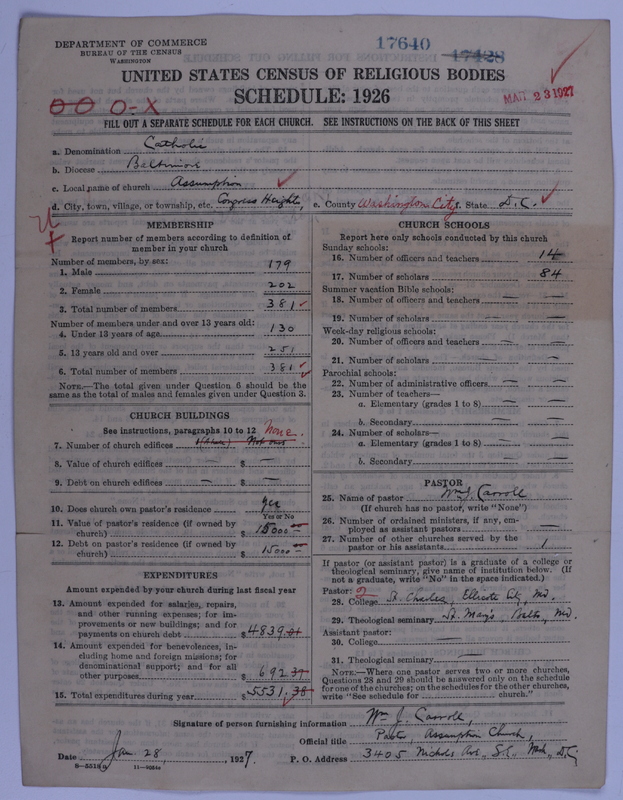 DEPARTMENT OF COMMERCE
BUREAU OF THE CENSUS
WASHINGTON
17640 17428
UNITED STATES CENSUS OF RELIGIOUS BODIES
SCHEDULE: 1926
MAR 23 1927
O O O-X
FILL OUT A SEPARATE SCHEDULE FOR EACH CHURCH. SEE INSTRUCTIONS ON THE BACK OF THIS SHEET
a. Denomination Catholic
b. Diocese Baltimore
c. Local name of church Assumption
d. City, town, village, or township, etc. Congress Heights, e. County Washington City f. State D.C.
MEMBERSHIP
Report number of members according to definition of
member in your church
Number of members, by sex:
1. Male 179
2. Female 202
3. Total number of members 381
Number of members under and over 13 years old:
4. Under 13 years of age 130
5. 13 years old and over 251
6. Total number of members 381
NOTE.—The total given under Question 6 should be the
same as the total of males and females given under Question 3.
CHURCH BUILDINGS
See instructions, paragraphs 10 to 12 None
7. Number of church edifices
8. Value of church edifices — $ —
9. Debt on church edifices — $ —
10. Does church own pastor's residence yes
Yes or No
11. Value of pastor's residence (if owned by
church) $ 15000
12. Debt on pastor's residence (if owned by
church) $ 15000
EXPENDITURES
Amount expended by your church during last fiscal year
13. Amount expended for salaries, repairs,
and other running expenses; for im-
provements or new buildings; and for
payments on church debt $ 4839.01
14. Amount expended for benevolences, in-
cluding home and foreign missions; for
denominational support; and for all
other purposes $ 692.37
15. Total expenditures during year $ 5531.38
CHURCH SCHOOLS
Report here only schools conducted by this church
Sunday schools:
16. Number of officers and teachers 14
17. Number of scholars 84
Summer vacation Bible schools:
18. Number of officers and teachers — —
19. Number of scholars — —
Week-day religious schools:
20. Number of officers and teachers — —
21. Number of scholars — —
Parochial schools:
22. Number of administrative officers — —
23. Number of teachers—
a. Elementary (grades 1 to 8) — —
b. Secondary — —
24. Number of scholars—
a. Elementary (grades 1 to 8) — —
b. Secondary — —
PASTOR
25. Name of pastor Wm J. Carroll
(If church has no pastor, write "None")
26. Number of ordained ministers, if any, em-
ployed as assistant pastors —
27. Number of other churches served by the
pastor or his assistants 1
If pastor (or assistant pastor) is a graduate of a college or
theological seminary, give name of institution below. (If
not a graduate, write "No" in the space indicated.)
Pastor: 2
28. College St. Charles, Ellicott City, Md.
29. Theological seminary St. Mary's, Balto, Md.
Assistant pastor:
30. College —
31. Theological seminary —
NOTE.—Where one pastor serves two or more churches,
Questions 28 and 29 should be answered only on the schedule
for one of the churches; on the schedules for the other churches,
write "See schedule for church."
Signature of person furnishing information Wm J. Carroll,
Official title Pastor, Assumption Church,
Date Jan 28, 1927. P. O. Address 3405 Nichols Ave., S.E., Wash., D.C.
8—5518a 11—9034a